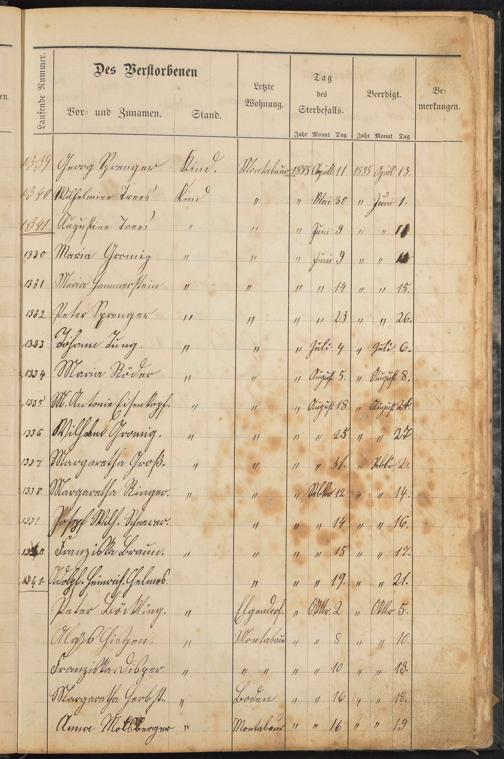 Laufende Nummer.
Des Verstorbenen
Vor- und Zunamen.
Stand.
Letzte Wohnung.
Tag des Sterbefalls.
Jahr Monat Tag
Beerdigt.
Jahr Monat Tag
Bemerkungen.
1339 Georg Sprenger Kind. Montabaur 1885 April 11 1885 April 13.
1340 Wilhelmine Kind " " Mai 30 " Juni 1.
1341 Augustine " " " Juni 9 " "
1330 Maria Gromig " " " Juni 9 " "
1331 Maria Hammerstein " " " " 14 " " 15.
1332 Peter Sprenger " " " " 23 " " 26.
1333 Johann Jung. " " " Juli 4 " Juli 6.
1334 Maria Röder " " " August 5. " August 8.
1335 M. Antonie Eisenkopf. " " " August 18 " August
1336 Wilhelm Gromig. " " " " 25 " " 27
1337 Margaretha Groß. " " " " 31. " 2.
1338 Margaretha Ringer. " " " 12 " " 14.
Joseph Wilh. " " " " 14 " " 16.
Franziska Braun. " " " " 15 " " 17.
1341. Adolph Heinrich Helmes " " " 19. " " 21.
Peter " Elgendorf. " Oktbr. 2 " Oktbr. 5.
" Montabaur " " 8 " " 10.
Franziska " " " " " 10 " " 13.
Margaretha Herbst. " Boden " " 16 " " 18.
Anna Molsberger " Montabaur " " 16 " " 19